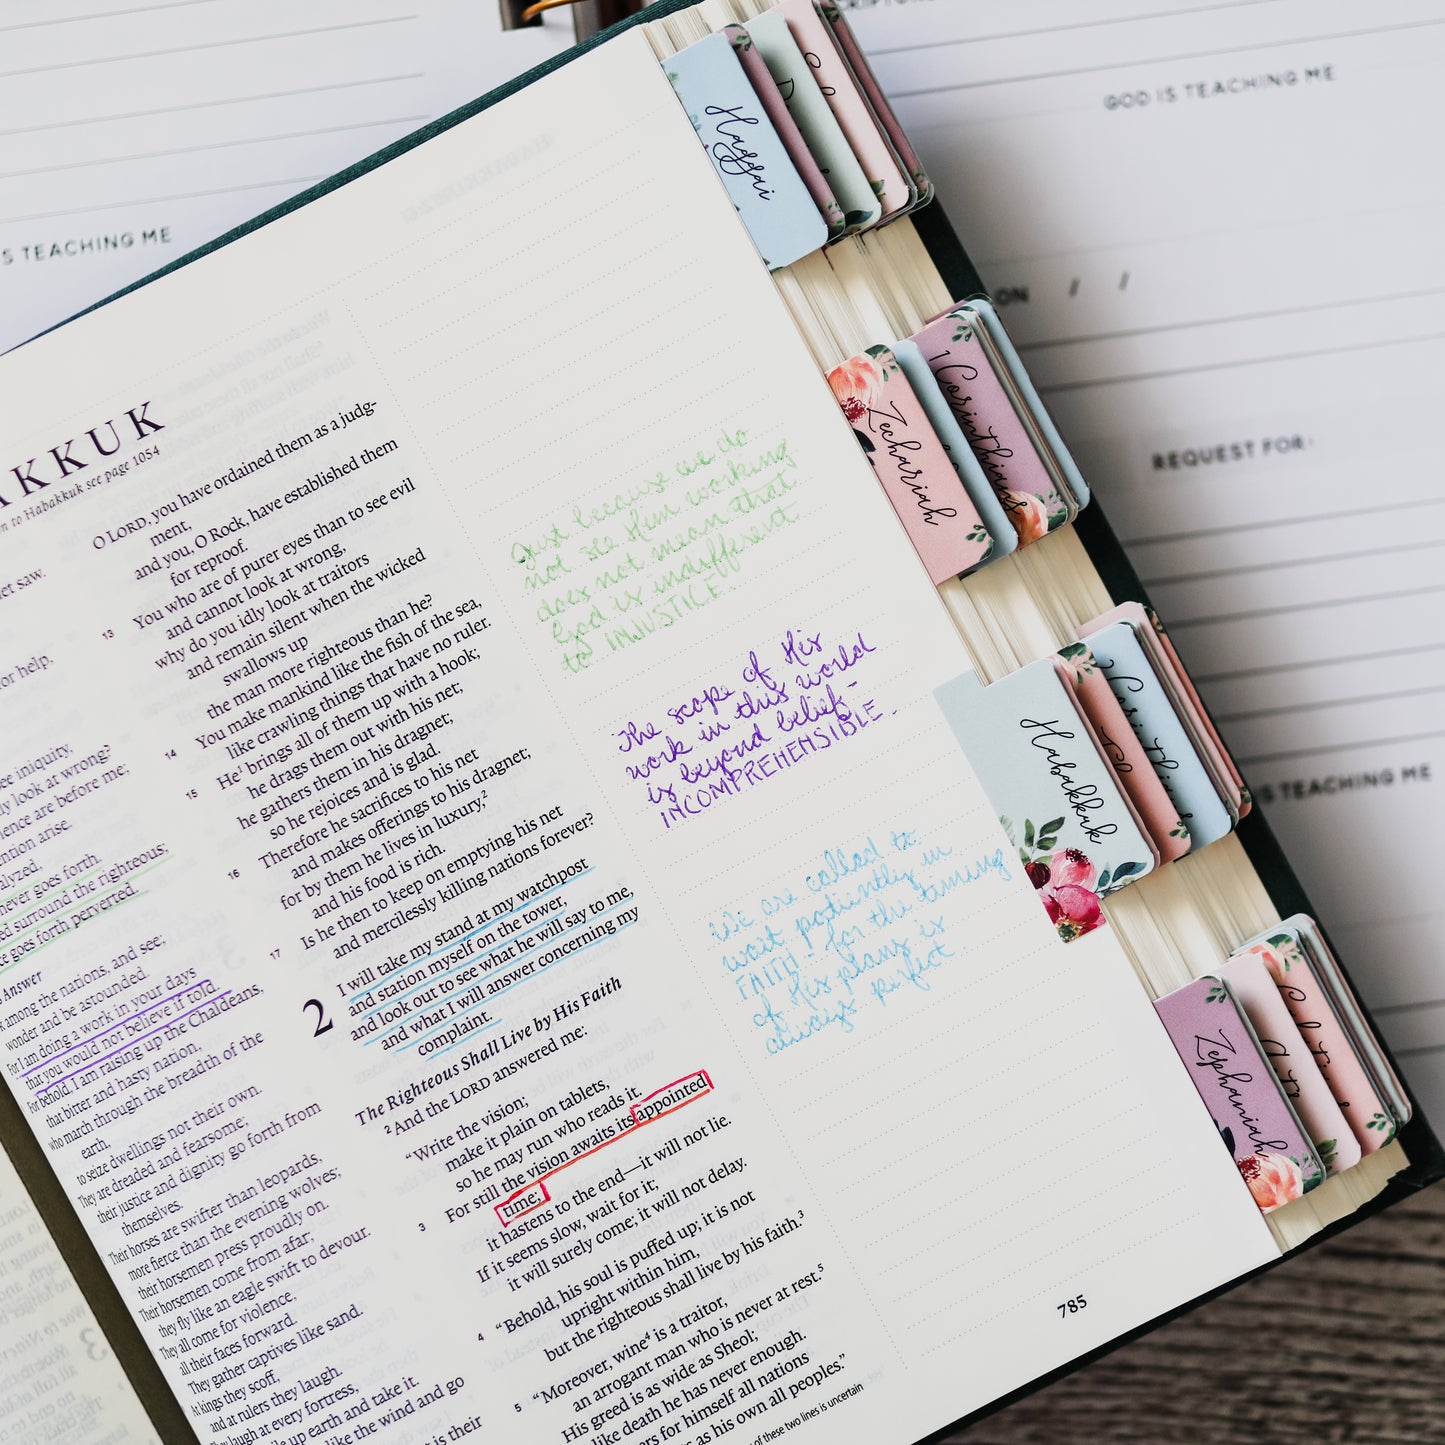 GOD IS TEACHING ME
S TEACHING ME
ON / /
REQUEST FOR:
IS TEACHING ME
Haggai
Zechariah
1 Corinthians
Habakkuk
Zephaniah
AKKUK
n to Habakkuk see page 1054
et saw.
or help,
ee iniquity,
ly look at wrong?
lence are before me;
ntion arise.
alyzed,
never goes forth.
ed surround the righteous;
ce goes forth perverted.
s Answer
among the nations, and see;
wonder and be astounded.
For I am doing a work in your days
that you would not believe if told.
For behold, I am raising up the Chaldeans,
that bitter and hasty nation,
who march through the breadth of the
earth,
to seize dwellings not their own.
They are dreaded and fearsome;
their justice and dignity go forth from
themselves.
Their horses are swifter than leopards,
more fierce than the evening wolves;
their horsemen press proudly on.
Their horsemen come from afar;
they fly like an eagle swift to devour.
They all come for violence,
all their faces forward.
They gather captives like sand.
At kings they scoff,
and at rulers they laugh.
They laugh at every fortress,
up earth and take it.
like the wind and go
t is their
O LORD, you have ordained them as a judg-
ment,
and you, O Rock, have established them
for reproof.
13 You who are of purer eyes than to see evil
and cannot look at wrong,
why do you idly look at traitors
and remain silent when the wicked
swallows up
the man more righteous than he?
14 You make mankind like the fish of the sea,
like crawling things that have no ruler.
15 He1 brings all of them up with a hook;
he drags them out with his net;
he gathers them in his dragnet;
so he rejoices and is glad.
16 Therefore he sacrifices to his net
and makes offerings to his dragnet;
for by them he lives in luxury,2
and his food is rich.
17 Is he then to keep on emptying his net
and mercilessly killing nations forever?
2 I will take my stand at my watchpost
and station myself on the tower,
and look out to see what he will say to me,
and what I will answer concerning my
complaint.
The Righteous Shall Live by His Faith
2 And the LORD answered me:
"Write the vision;
make it plain on tablets,
so he may run who reads it.
3 For still the vision awaits its appointed
time;
it hastens to the end—it will not lie.
If it seems slow, wait for it;
it will surely come; it will not delay.
4 "Behold, his soul is puffed up; it is not
upright within him,
but the righteous shall live by his faith.3
5 "Moreover, wine4 is a traitor,
an arrogant man who is never at rest.5
His greed is as wide as Sheol;
like death he has never enough.
ers for himself all nations
s as his own all peoples."
of these two lines is uncertain
Just because we do
not see Him working
does not mean that
God is indifferent
to INJUSTICE
The scope of His
work in this world
is beyond belief-
INCOMPREHENSIBLE.
We are called to
wait patiently in
FAITH - for the timing
of His plans is
always perfect
785